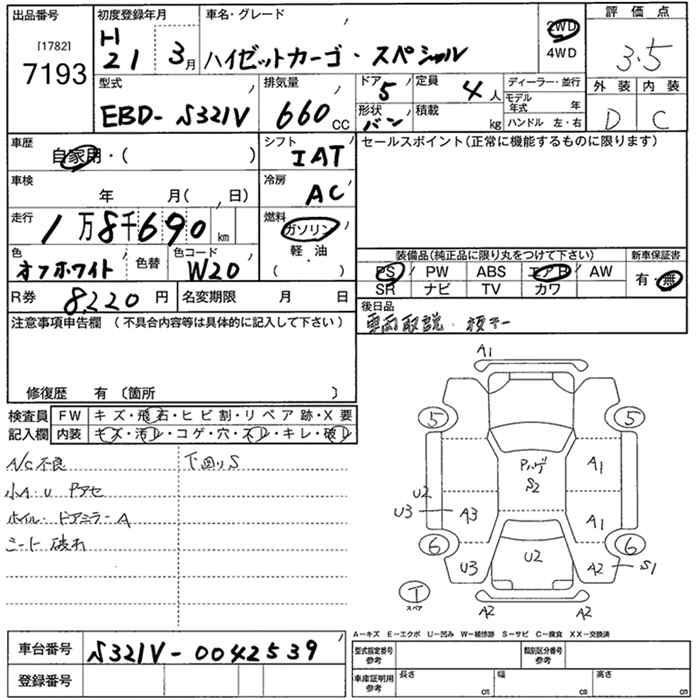 出品番号 初度登録年月 車名・グレード 評価点
[1782] H 2WD
7193 21 3月 ハイゼットカーゴ・スペシャル 4WD 3.5
型式 排気量 ドア 5 定員 4人 ディーラー・並行 外装 内装
モデル年式 年
EBD-S321V 660 CC 形状 バン 積載 kg ハンドル 左・右 D C
車歴 自家用・( ) シフト IAT セールスポイント(正常に機能するものに限ります)
車検 年 月( 日) 冷房 AC
走行 1万8千690km 燃料 ガソリン
軽油
( )
色 オフホワイト 色替 色コード W20
装備品(純正品に限り丸をつけて下さい) 新車保証書
PS PW ABS エアB AW 有・無
SR ナビ TV カワ
R券 8220円 名変期限 月 日 後日品
車両取説・
注意事項申告欄(不具合内容等は具体的に記入して下さい)
修復歴 有(箇所 )
検査員 FW キズ・飛石・ヒビ割・リペア跡・X要
記入欄 内装 キズ・汚レ・コゲ・穴・スレ・キレ・破レ
A/C不良 下回りS
小A・U Pアセ
ホイル・ドアミラーA
シート破れ
A1
5 5
Pハゲ
S2
A1
U2
U3 A3 A1
6 6
U3 U2 A2 S1
T
スペア
A2 A2
A-キズ E-エクボ U-凹み W-補修跡 S-サビ C-腐食 XX-交換済
車台番号 S321V-0042539 型式指定番号 参考 類別区分番号 参考
登録番号 車庫証明用 参考 長さ cm 幅 cm 高さ cm